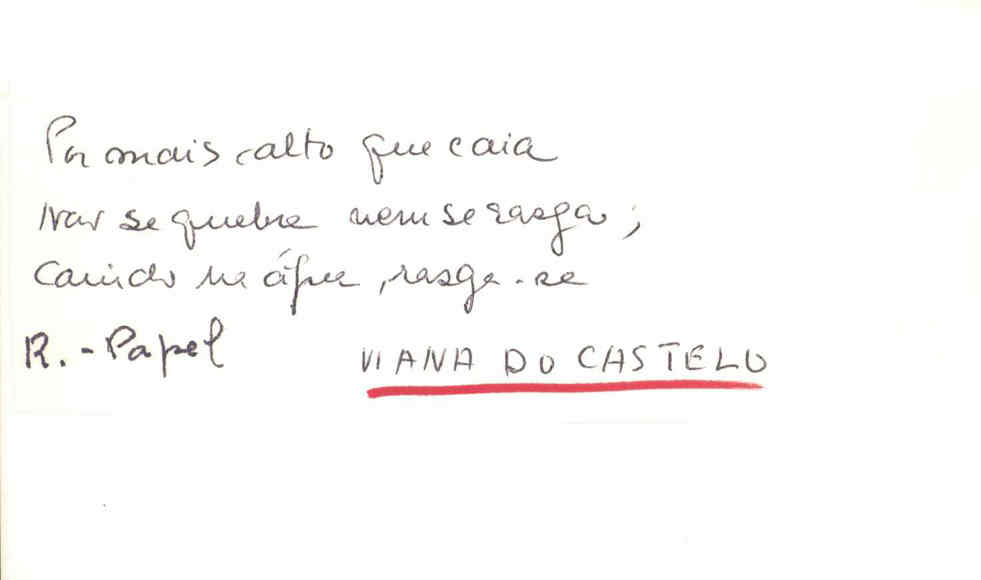 Por mais calto que caia
Não se quebra nem se rasga;
Caindo na água, rasga-se
R. - Papel
VIANA DO CASTELO